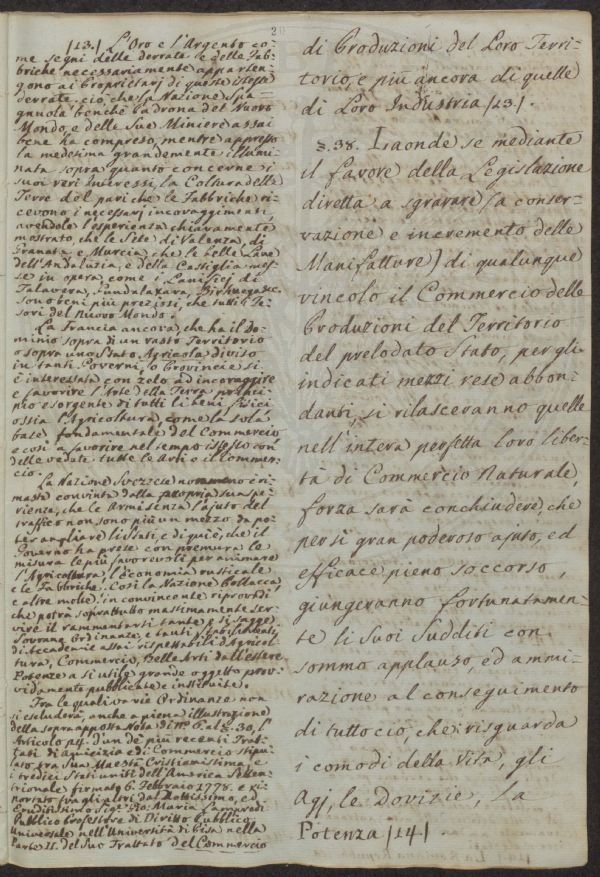 20
[13.] L'Oro e l'Argento co-
me segni delle derrate e delle Fab-
briche necessariamente apparten-
gono ai Proprietarj di queste istesse
derrate. ciò, che la Nazione Spa-
gnuola benchè Padrona del Nuovo
Mondo, e delle sue Miniere assai
bene ha compreso, mentre appresso
la medesima grandemente illumi-
nata sopra quanto concerne i
suoi veri Interessi, la Coltura delle
Terre del pari che le Fabbriche ri-
cevono i necessarj incoraggimenti,
avendole l'esperienza chiaramente
mostrato, che le Sete di Valenza, di
Granata, e Murcia, che le belle Lane
dell'Andaluzia, e della Castiglia mes-
se in opera come i Lanificj di
Talavera, Guadalaxara,
sono beni più preziosi, che tutti i Te-
sori del Nuovo Mondo.
La Francia ancora, che ha il Do-
minio sopra di un vasto Territorio
o sopra uno Stato Agricola diviso
in tanti Governi, o Provincie si
è interessata con zelo ad incoraggire
e favorire l'Arte della Terra princi-
pio e sorgente di tutti li beni fisici
ossia l'Agricoltura, come la sola
base fondamentale del Commercio
e così a favorire nel tempo istesso con
delle vedute tutte le Arti e il Commer-
cio.
La Nazione Svezzese non meno è ri-
masta convinta dalla propria sua spe-
rienza, che le Armi senza l'ajuto del
traffico non sono più un mezzo da po-
ter ampliare li Stati, e di qui è, che il
Governo ha prese con premura le
misure le più favorevoli per animare
l'Agricoltura, l'Economia rusticale
e le Fabbriche. Così la Nazione Pollacca,
e altre molte, in convincente riprova di
che potrà soprattutto massimamente ser-
vire il rammentarsi tante e sì sagge
Sovrane Ordinanze, e tanti Stabilimenti
di Accademie assai rispettabili d'Agricol-
tura, Commercio, Belle Arti dall'estere
Potenze a sì utile grande oggetto prov-
vidamente pubblicate e instituite.
Tra le quali varie Ordinanze non
si escluderà, anche a piena illustrazione
della sopra apposta Nota di N° 8 al §. 30, l'
Articolo 24. d'un de' più recenti Trat-
tati di amicizia ed i Commercio stipu-
lato fra Sua Maestà Cristianissima, e
i tredici Stati uniti dell'America Setten-
trionale firmato 6. Febbraio 1778. e ri-
portato fra gli altri dal Dottissimo, ed
Eruditissimo Sigr. Gio. Maria Lampredi
Pubblico Professore di Diritto Pubblico
Universale nell'Università di Pisa nella
Parte II. del suo Trattato del Commercio
di Produzioni del Loro Terri-
torio, e più ancora di quelle
di Loro Industria [13].
§. 38. Laonde se mediante
il favore della Legislazione
diretta a sgravare [a conser-
vazione e incremento delle
Manifatture] di qualunque
vincolo il Commercio delle
Produzioni del Territorio
del prelodato Stato, per gli
indicati mezzi rese abbon-
danti, si rilasceranno quelle
nell'intera perfetta loro liber-
tà di Commercio Naturale,
forza sarà conchiudere, che
per sì gran poderoso ajuto, ed
efficace pieno soccorso,
giungeranno fortunatamen-
te li Suoi Sudditi con
sommo applauso ed ammi-
razione al conseguimento
di tuttociò, che risguarda
i comodi della Vita, gli
Agj, le Dovizie la
Potenza [14].